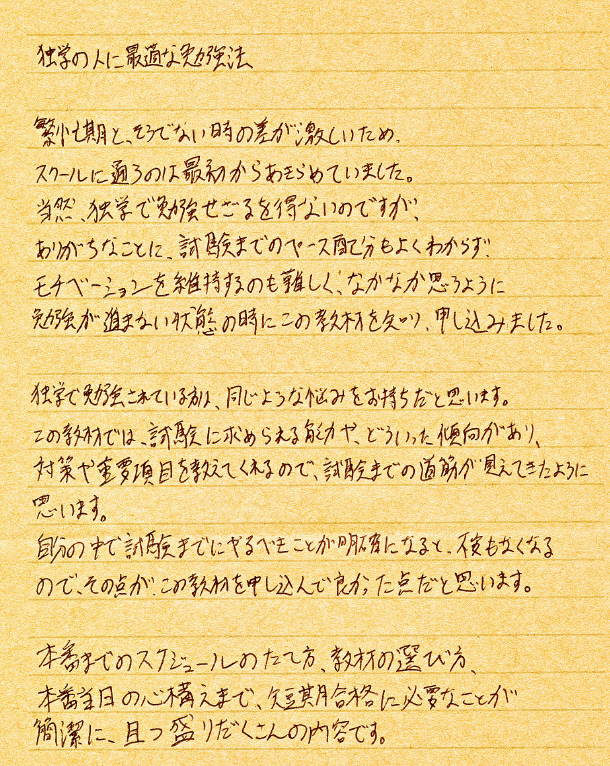 独学の人に最適な勉強法
繁忙期と、そうでない時の差が激しいため、
スクールに通うのは最初からあきらめていました。
当然、独学で勉強せざるを得ないのですが、
ありがちなことに、試験までのペース配分もよくわからず、
モチベーションを維持するのも難しく、なかなか思うように
勉強が進まない状態の時にこの教材を知り、申し込みました。
独学で勉強されている方は、同じような悩みをお持ちだと思います。
この教材では、試験に求められる能力や、どういった傾向があり、
対策や重要項目を教えてくれるので、試験までの道筋が見えてきたように
思います。
自分の中で試験までにやるべきことが明確になると、不安もなくなる
ので、その点が、この教材を申し込んで良かった点だと思います。
本番までのスケジュールのたて方、教材の選び方、
本番当日の心構えまで、短期合格に必要なことが
簡潔に、且つ盛りだくさんの内容です。